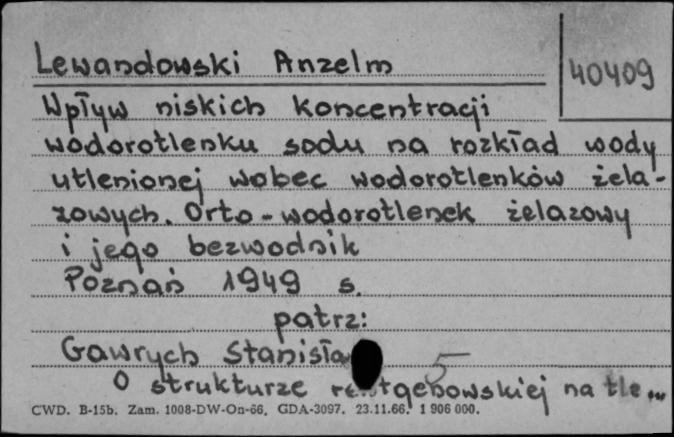 Lewandowski Anzelm
40409
Wpływ niskich koncentracji
wodorotlenku sodu na rozkład wody
utlenionej wobec wodorotlenków żela-
zowych. Orto-wodorotlenek żelazowy
i jego bezwodnik
Poznań 1949 s.
patrz:
Gawrych Stanisła
5
O strukturze rentgenowskiej na tle...
CWD. B-15b. Zam. 1008-DW-On-66. GDA-3097. 23.11.66. 1 906 000.